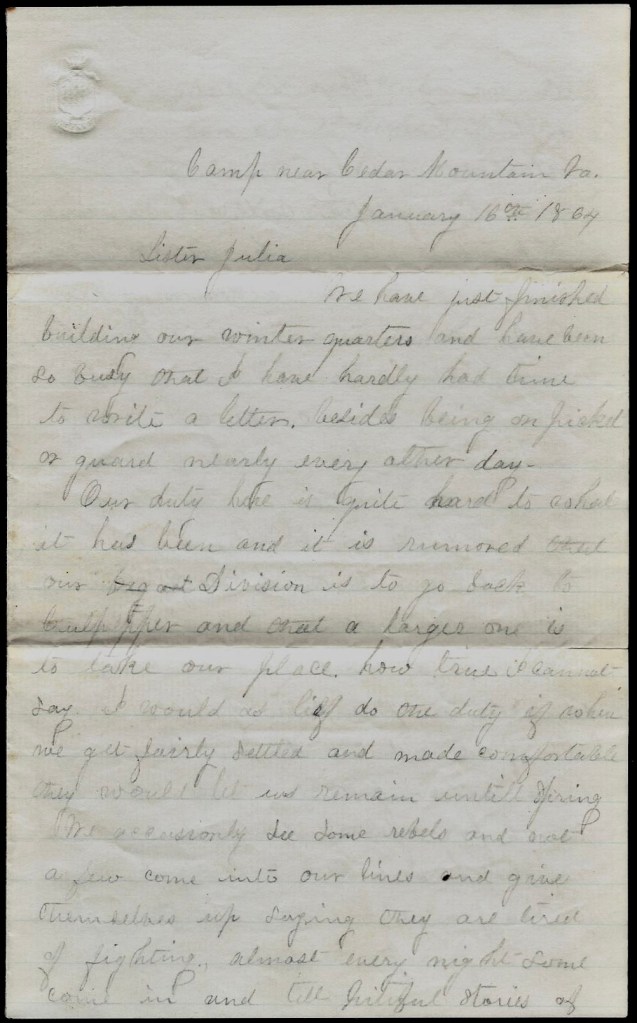 Camp near Cedar Mountain Va.
January 16th 1864
Sister Julia
We have just finished
building our winter quarters and have been
so busy that I have hardly had time
to write a letter. besides being on picked
or guard nearly every other day-
Our duty here is quite hard to what
it has been and it is rumored that
our Division is to go back to
Culpepper and that a larger one is
to take our place. how true I cannot
say I would as lief do the duty if when
we get fairly settled and made comfortable
they would let us remain untill Spring
We occasionly see some rebels and not
a few come into our lines and give
themselves up saying they are tired
of fighting. almost every night some
come in and tell pitiful stories of